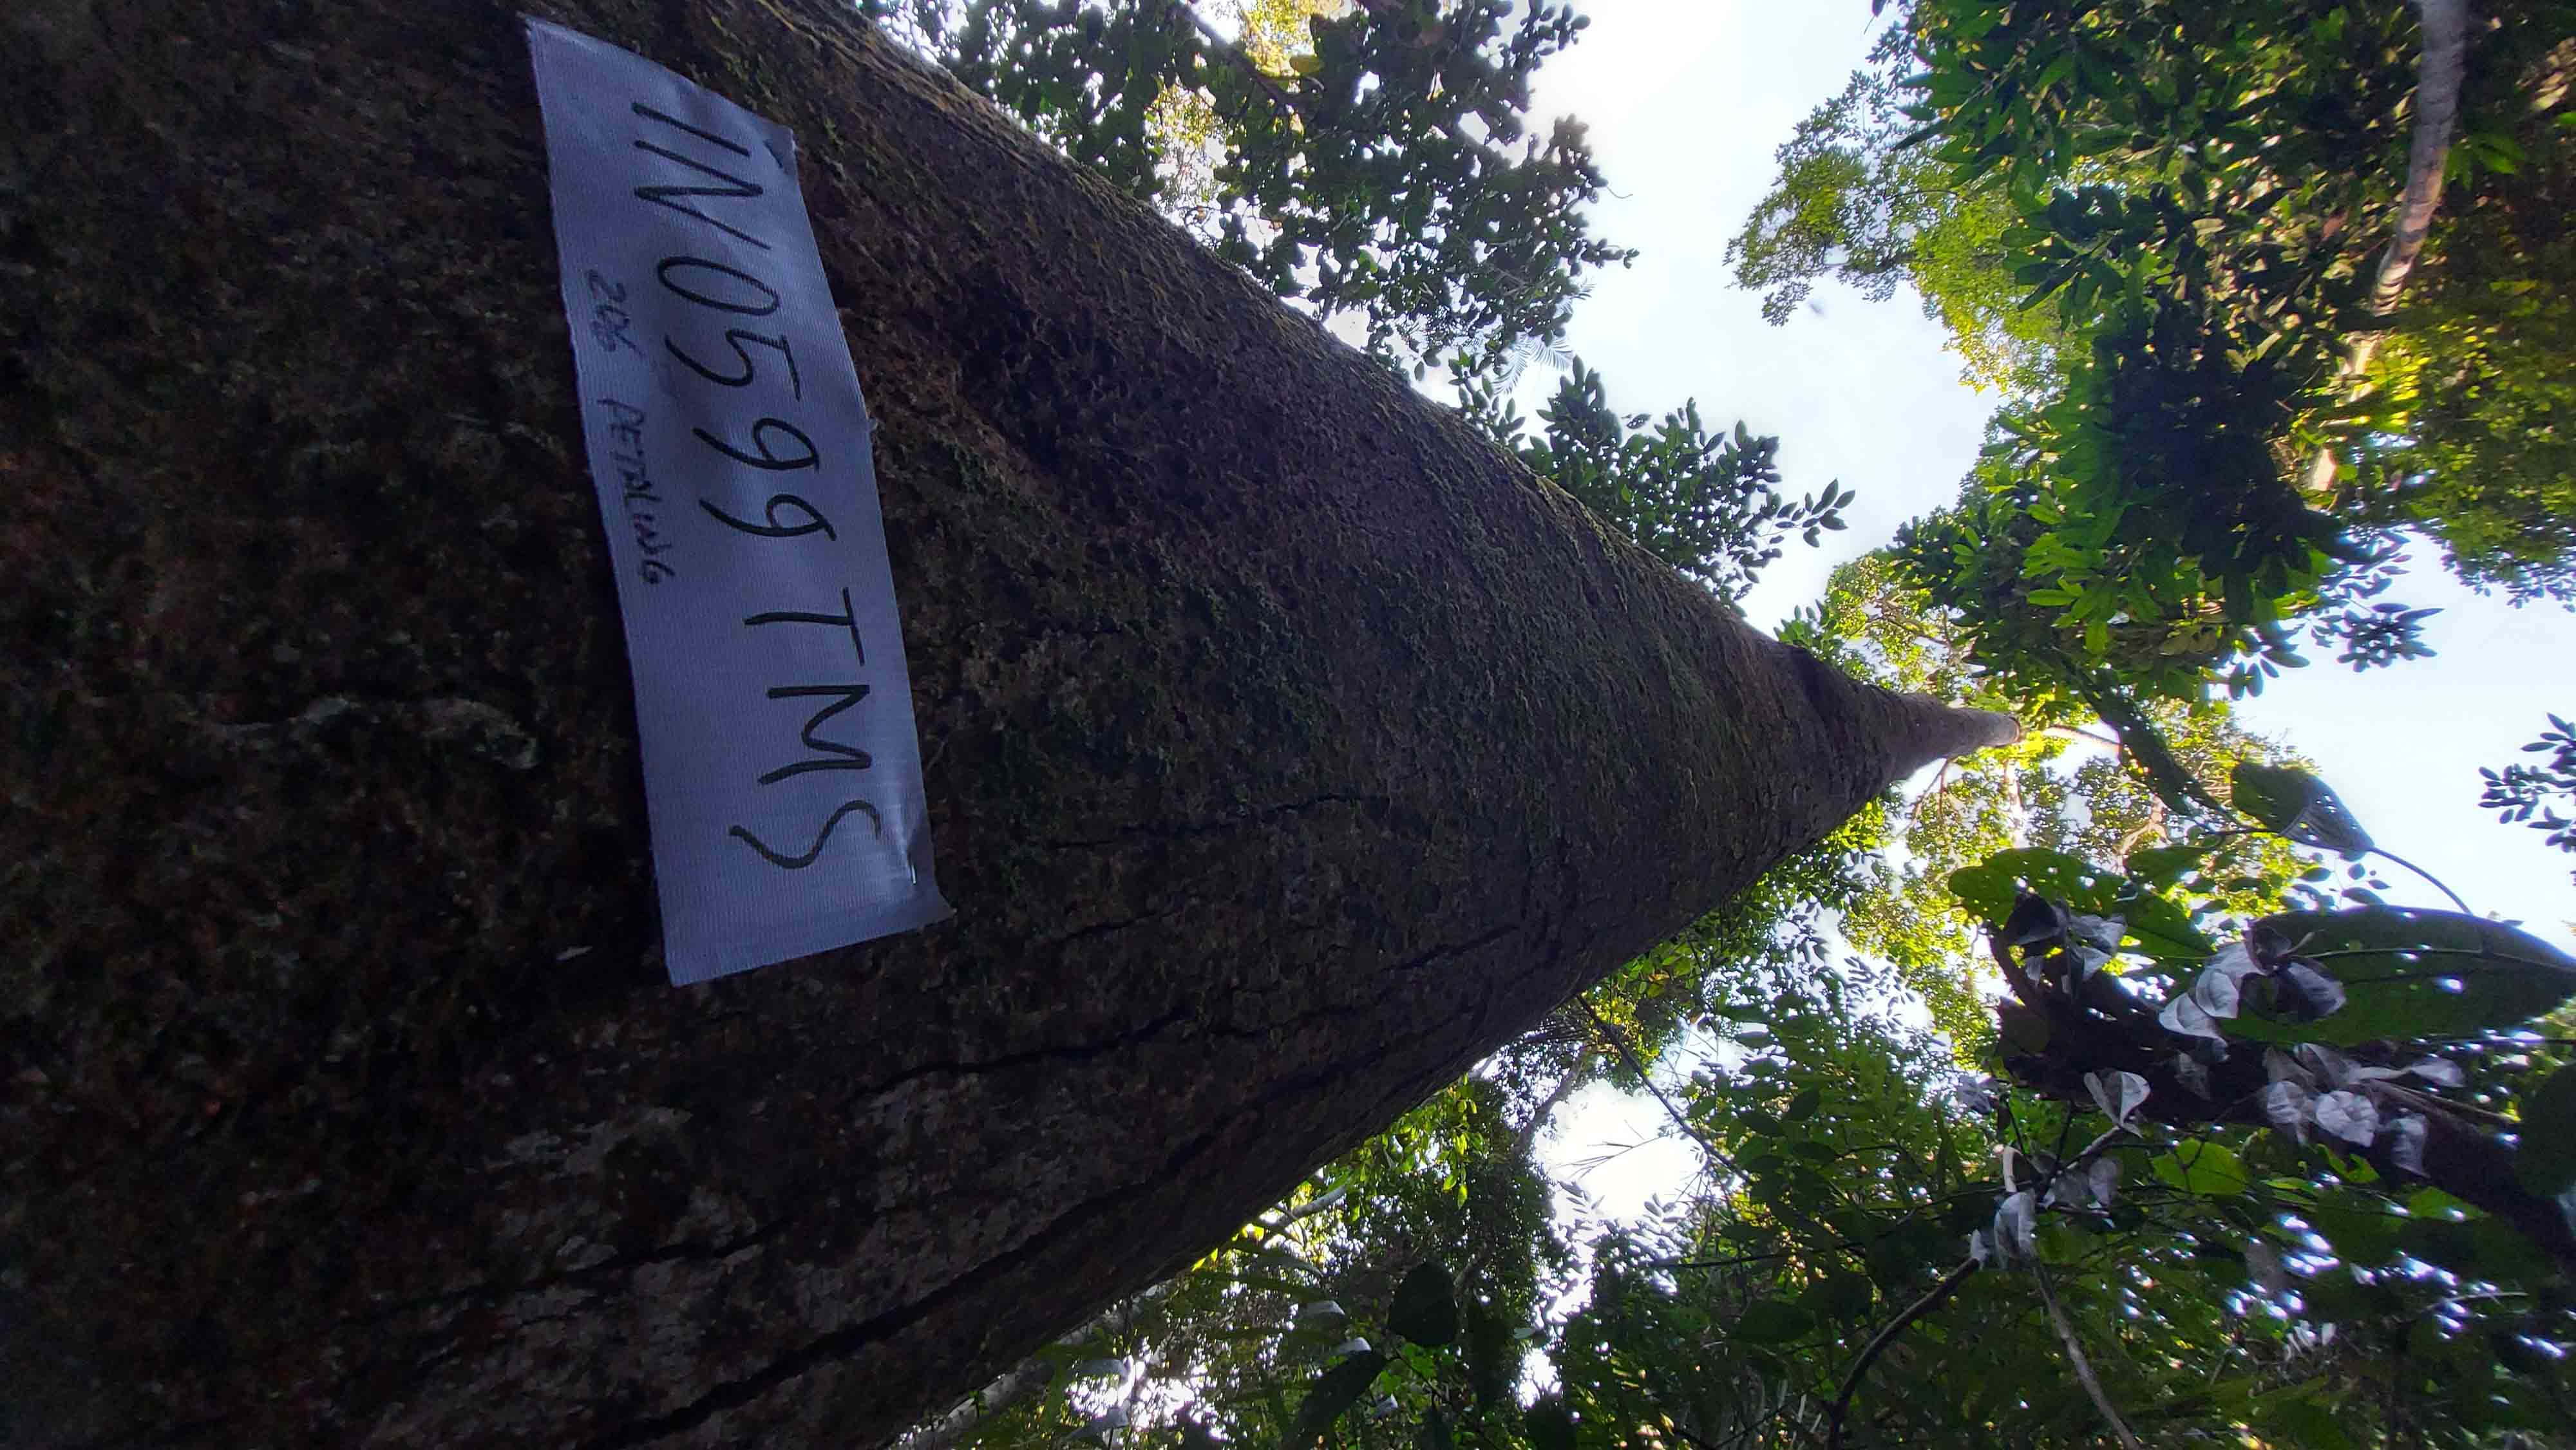 IN0599 TMS
206 PETALING